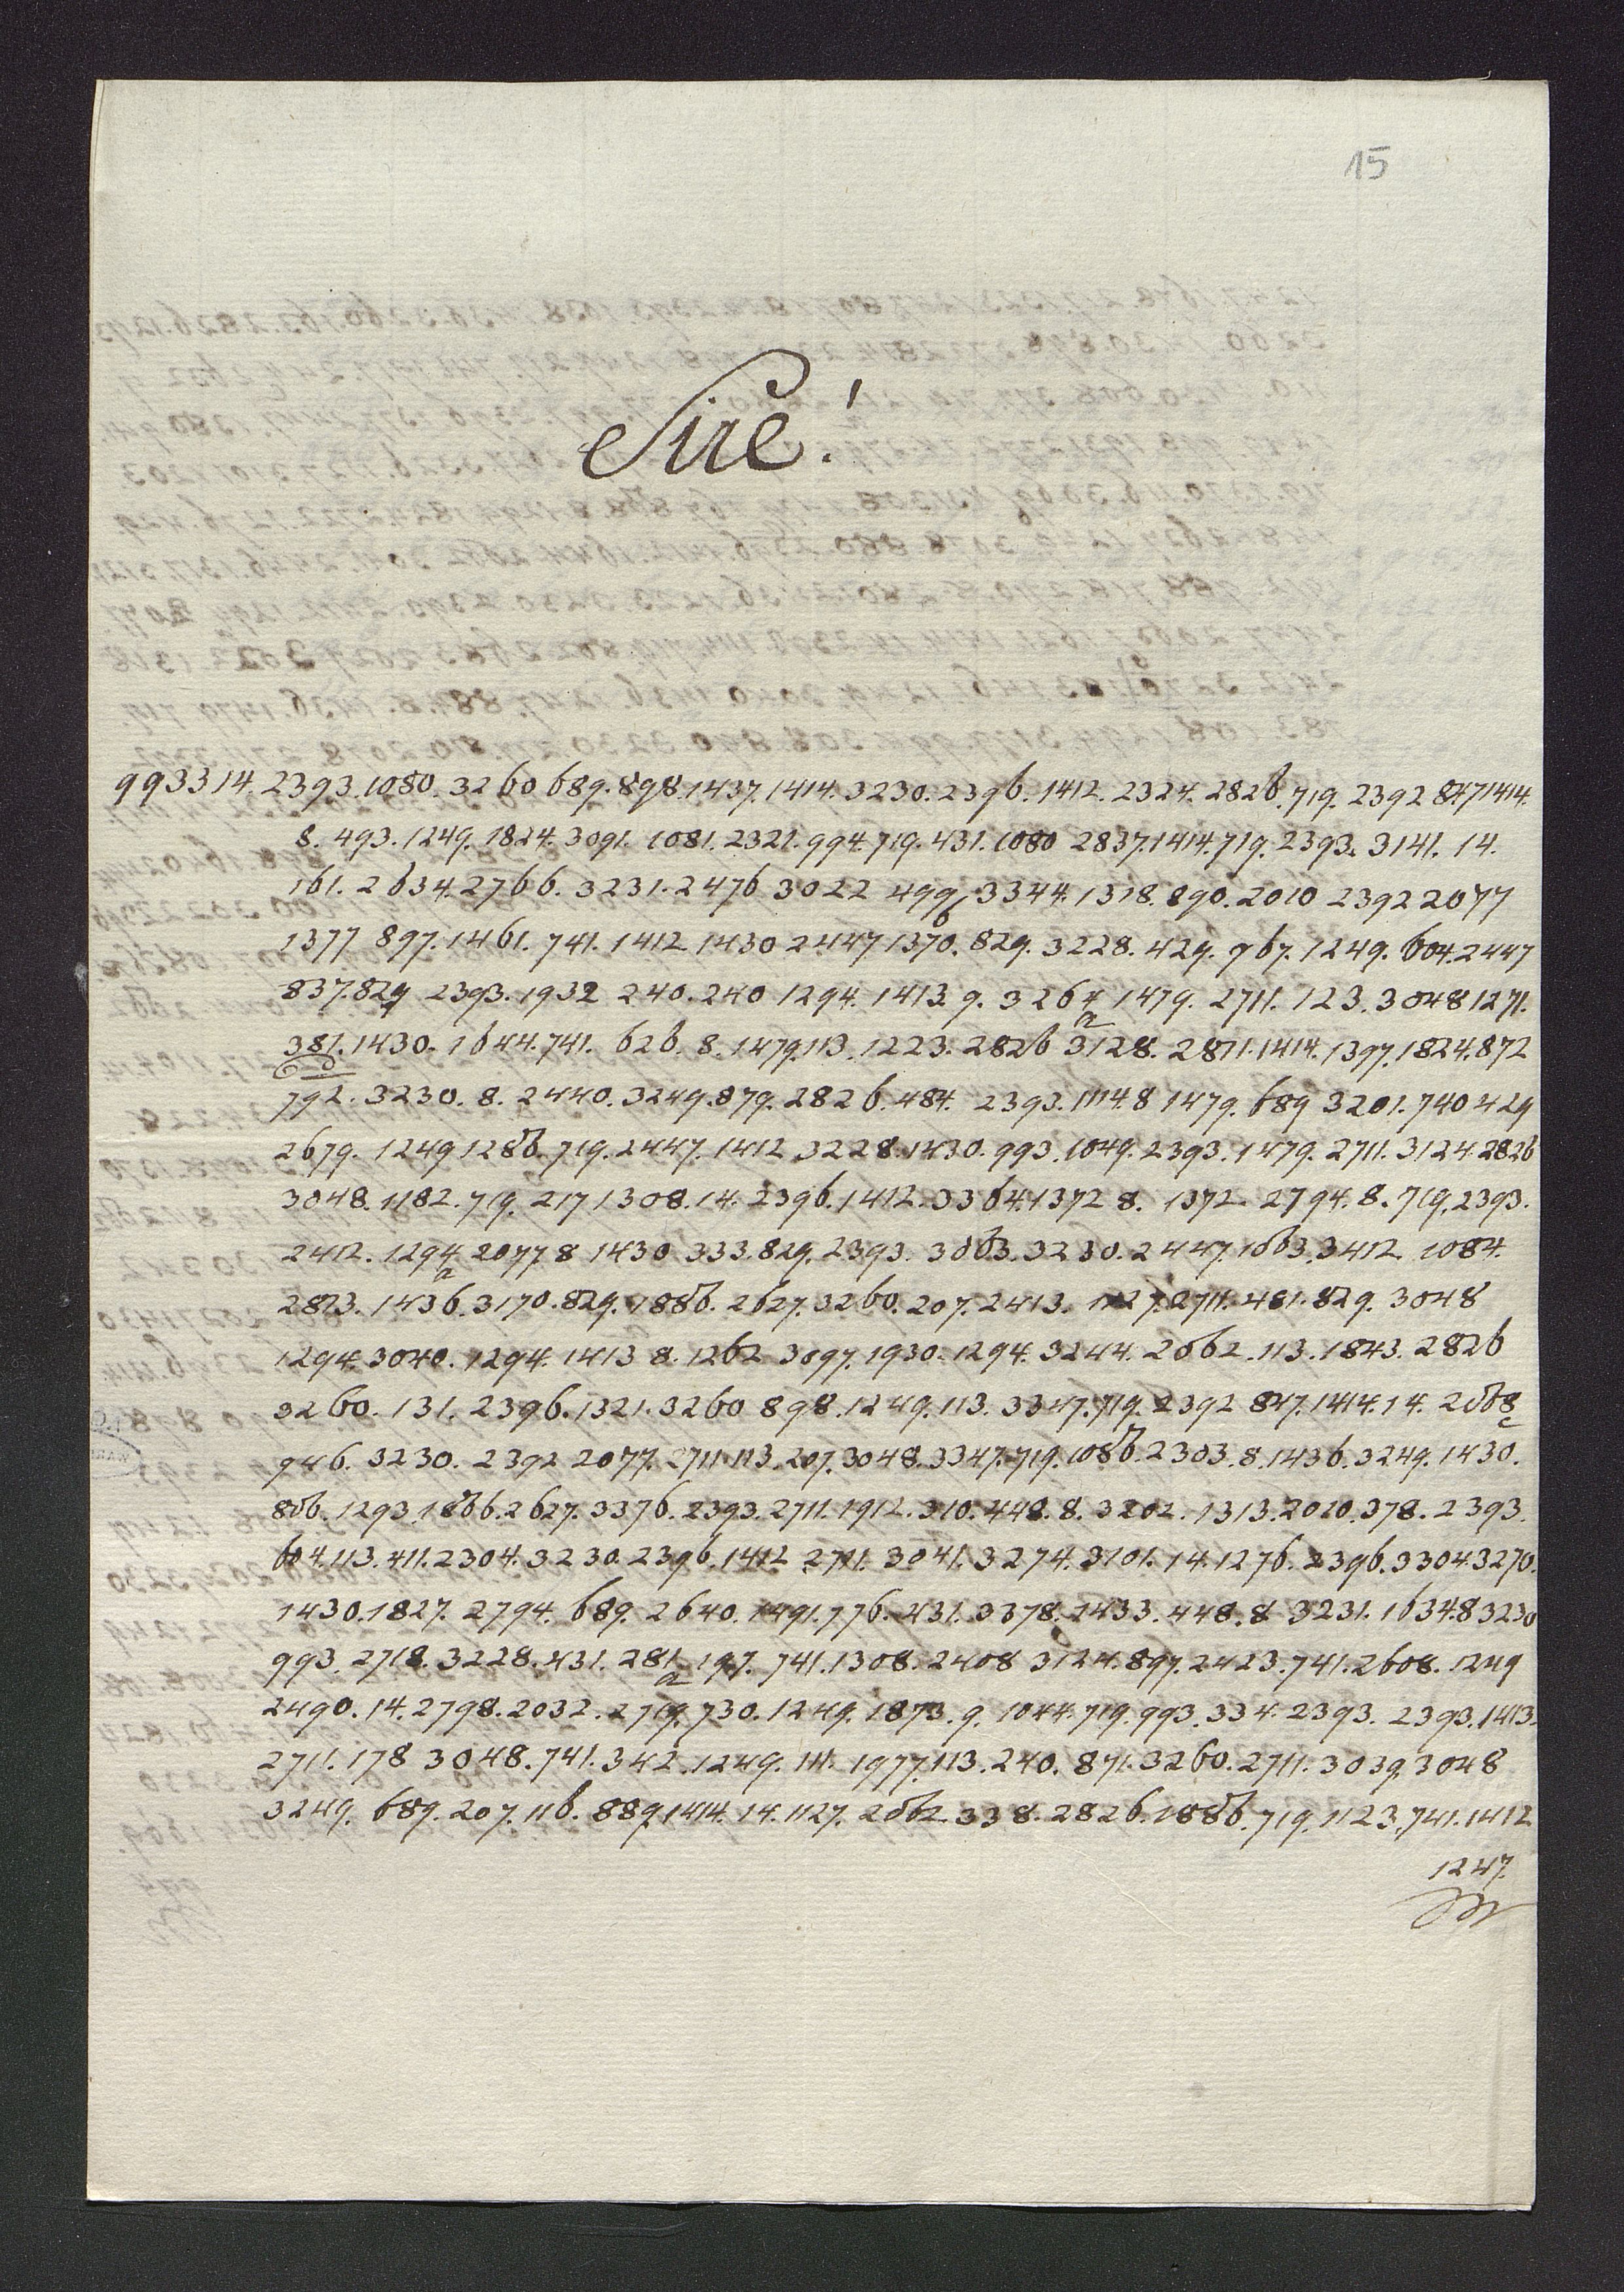 15
Sire!
993314. 2393. 1080. 3260 689. 898. 1437. 1414. 3230. 2396. 1412. 2324. 2826. 719. 2392 847 1414.
8. 493. 1249. 1824. 3091. 1081. 2321. 994. 719. 431. 1080 2837. 1414. 719. 2393. 3141. 14.
161. 2634. 2766. 3231. 2476 3022 499 3344. 1318. 890. 2010 2392 2077
1377 897. 1461. 741. 1412 1430 2447 1370. 829. 3228. 429. 967. 1249. 604. 2447
837. 829 2393. 1932 240. 240 1294. 1413. 9. 3264 1479. 2711. 123. 3048 1271.
381. 1430. 1644. 741. 626. 8. 1479. 113. 1223. 2826 3128. 2871. 1414. 1397. 1824. 872
792. 3230. 8. 2440. 3249. 879. 2826. 484. 2393. 1114. 8 1479. 689 3201. 740 429
2679. 1249 1286. 719. 2447. 1412 3228. 1430. 993. 1049. 2393. 1479. 2711. 3124. 2826
3048. 1182. 719. 217 1308. 14. 2396. 1412. 3364. 1372 8. 1372. 2794. 8. 719. 2393.
2412. 1294 2077. 8 1430 333. 829. 2393. 3063. 3230. 2447. 1063. 3412 1084.
2873. 1436. 3170. 829. 1886. 2627. 3260. 207. 2413. 1127. 2711. 481. 829. 3048
1294. 3040. 1294. 1413 8. 1262 3097. 1930. 1294. 3244. 2062. 113. 1843. 2826
3260. 131. 2396. 1321. 3260 898. 1249. 113. 3347. 719. 2392 847. 1414. 14. 2068
946. 3230. 2392 2077. 2711. 113. 207. 3048. 3347. 719. 1086. 2303. 8. 1436. 3249. 1430.
806. 1293. 1866. 2627. 3376. 2393. 2711. 1912. 310. 448. 8. 3202. 1313. 2010. 378. 2393.
604. 113. 411. 2304. 3230. 2396. 1412 2711. 3041. 3274. 3101. 14. 1276. 2396. 3304. 3270.
1430. 1827. 2794. 689. 2640. 1491. 776. 431. 3378. 1433. 448. 8 3231. 1634. 8 3230
993. 2718. 3228. 431. 281. 197. 741. 1308. 2408 3124. 897. 2423. 741. 2608. 1249
2490. 14. 2798. 2032. 2719. 730. 1249. 1873. 9. 1044. 719. 993. 334. 2393. 2393. 1413.
2711. 178 3048. 741. 342. 1249. 111. 1977. 113. 240. 871. 3260. 2711. 3039. 3048
3249. 689. 207. 116. 889. 1414. 14. 1127. 2062. 338. 2826. 1886. 719. 1123. 741. 1412
1247.